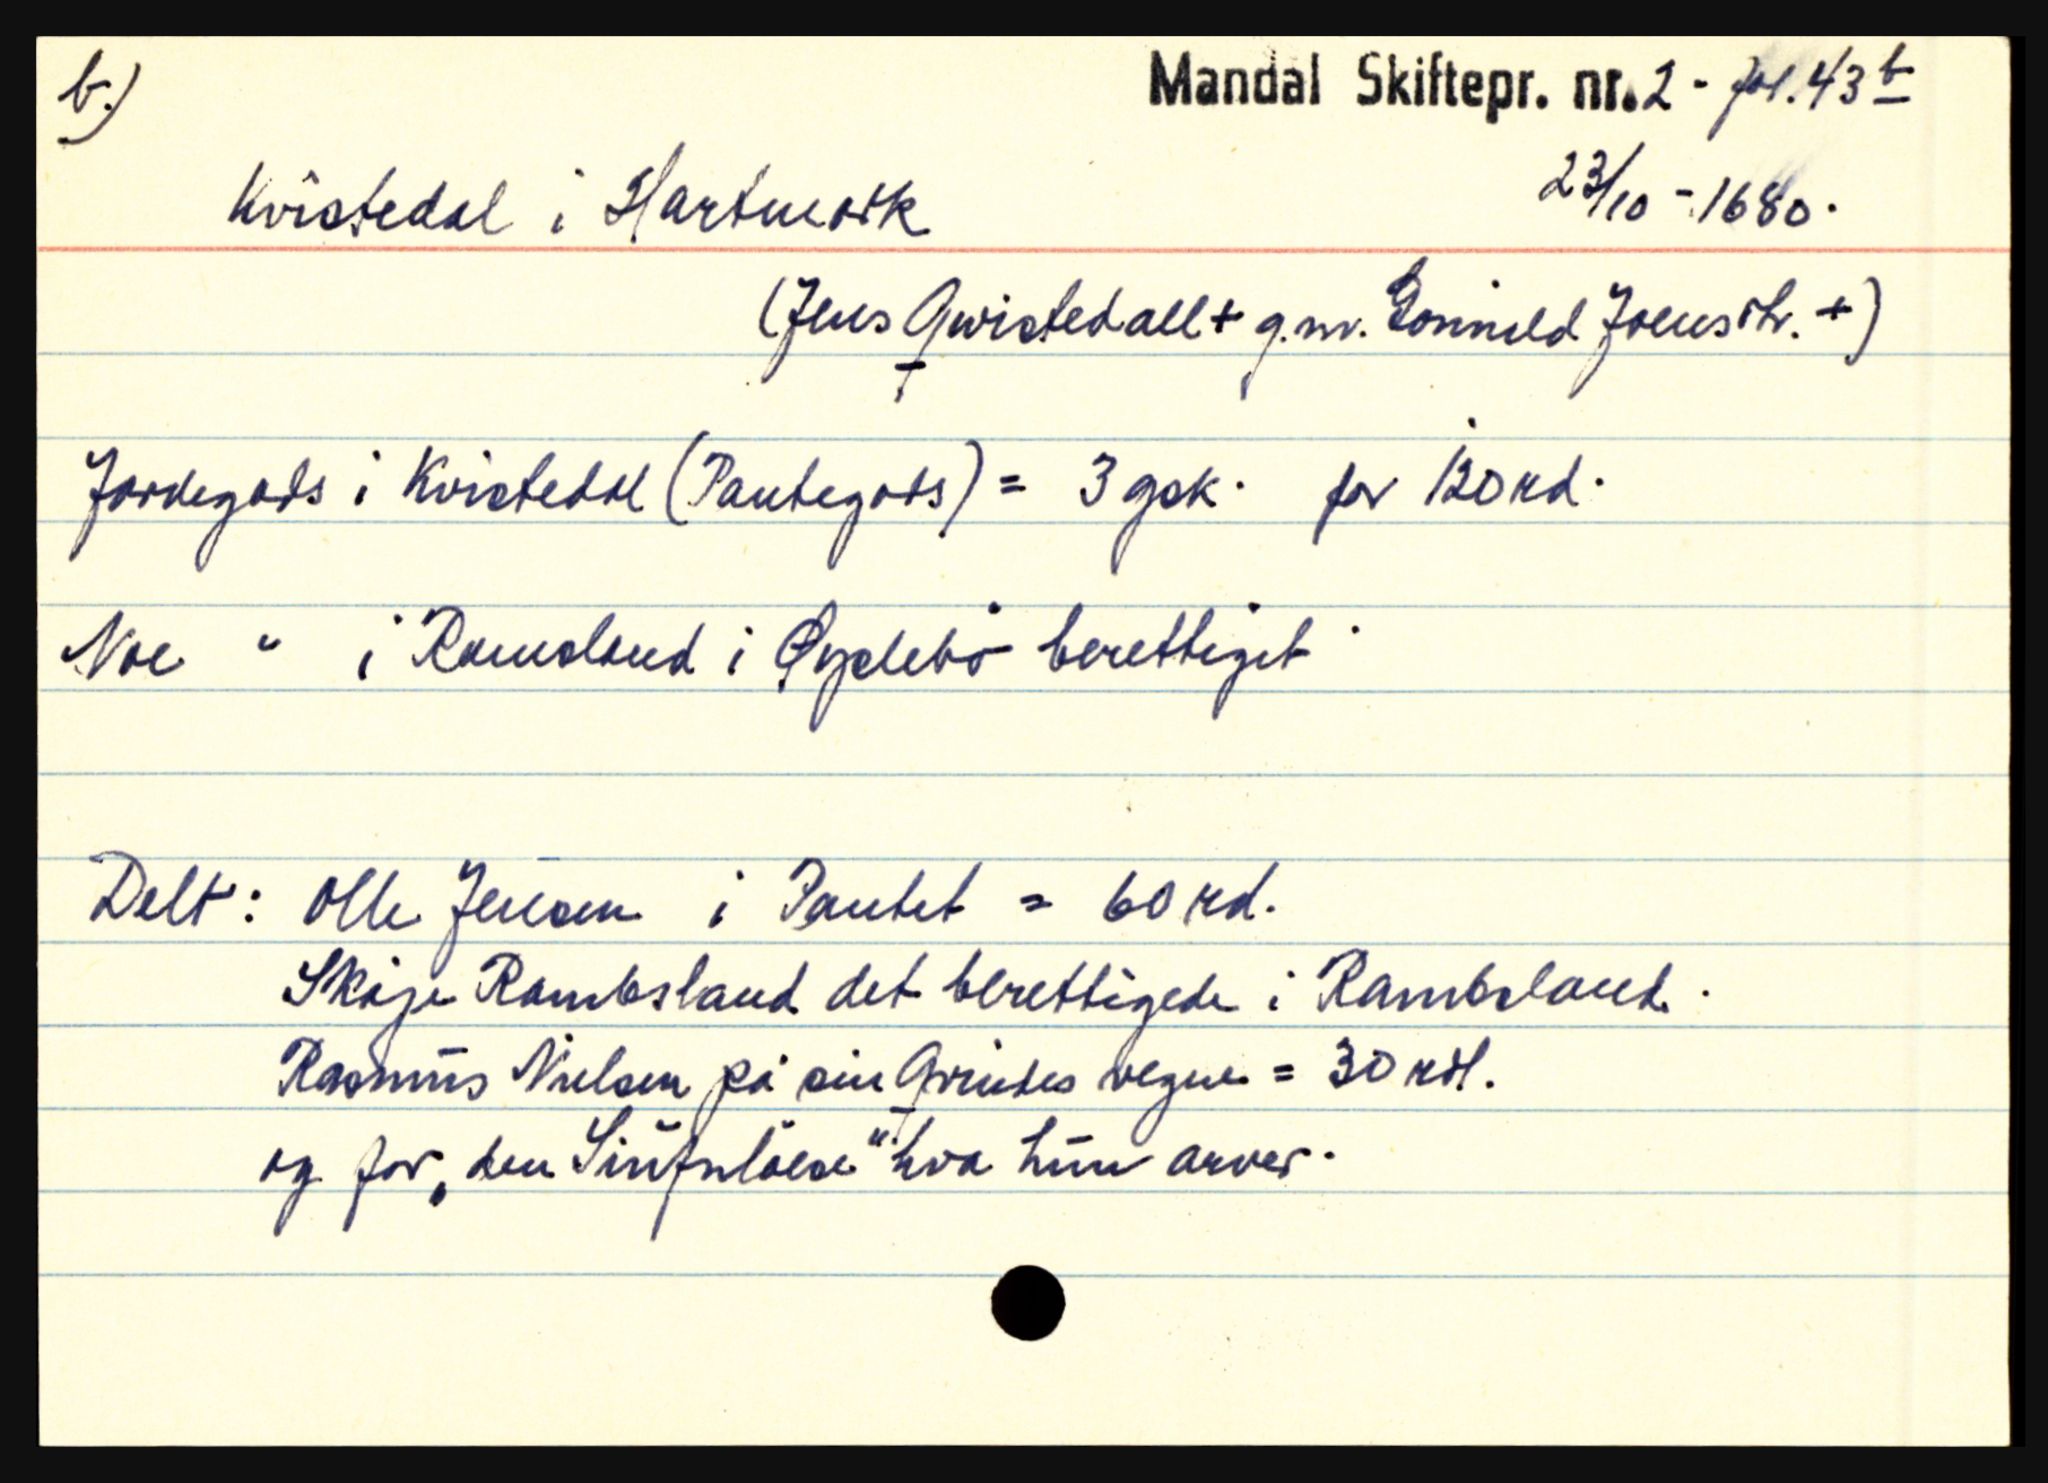 b.) Mandal Skiftepr. nr. 2 - fol. 43 b
Kvistedal i Hartmark 23/10 - 1680.
(Jens Qwistedall + g.m. Gonnild Joensdtr. +)
Jordegods i Kvistedal (Pantegods) = 3 gsk. for 120 rd.
Noe " i Ramsland i Øyslebö berettiget
Delt: Olle Jensen i Pantet = 60 rd.
Skøje Rambsland det berettigede i Rambsland.
Rasmus Nielsen på sin Qvindes vegne = 30 rdl.
og for „den Sinfnløese" hva hun arver.